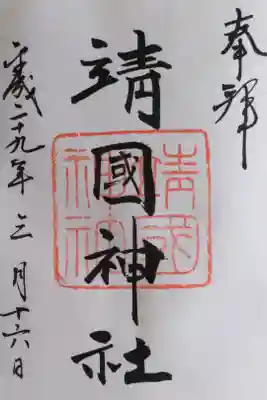 奉拝
靖國神社
靖國神社
平成二十九年三月十六日